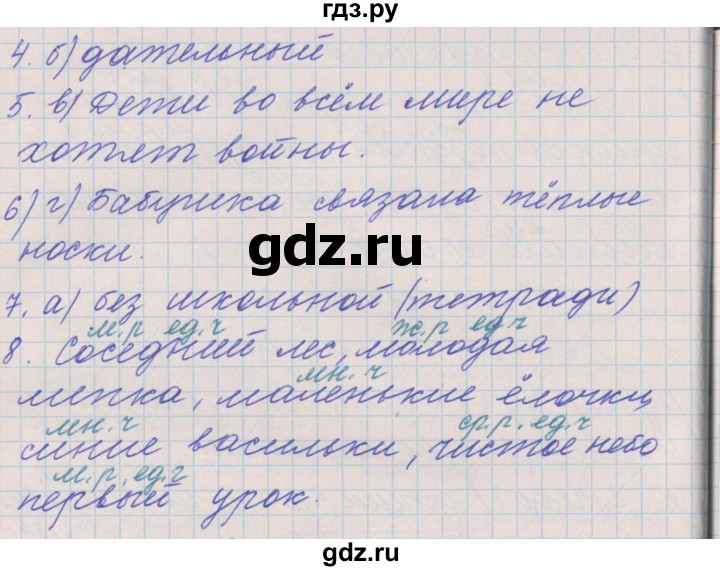 гдз.ру
4. б) дательный
5. в) Дети во всём мире не
хотят войны.
6) г) Бабушка связала тёплые
носки.
gdz.ru
7. а) без школьной (тетради)
м.р ед.ч ж.р ед.ч
8. Соседний лес, молодая
мн. ч
липка, маленькие ёлочки,
мн. ч ср.р. ед.ч
синие васильки, чистое небо
м.р. ед.ч
первый урок.
gdz.ru